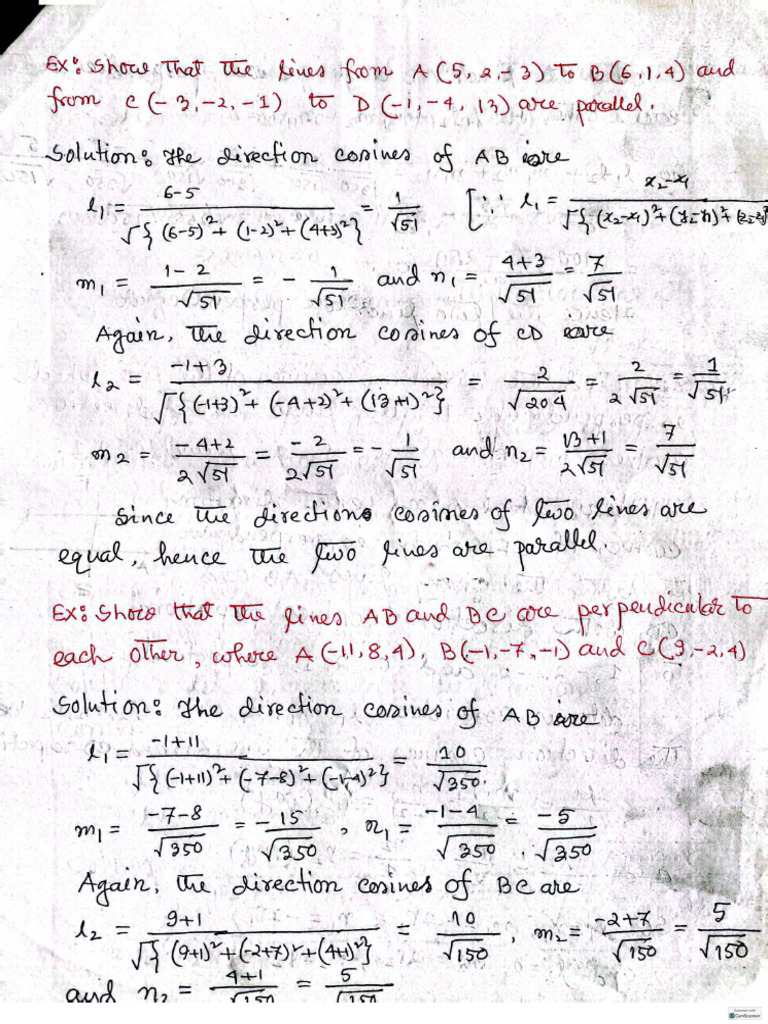 Ex: Show that the lines from A(5, 2, -3) to B(6, 1, 4) and
from C(-3, -2, -1) to D(-1, -4, 13) are parallel.
Solution: The direction cosines of AB are
l₁ = (6-5)/√{(6-5)²+(1-2)²+(4+3)²} = 1/√51 [∵ l₁ = (x₂-x₁)/√{(x₂-x₁)²+(y₂-y₁)²+(z₂-z₁)²
m₁ = (1-2)/√51 = -1/√51 and n₁ = (4+3)/√51 = 7/√51
Again, the direction cosines of CD are
l₂ = (-1+3)/√{(-1+3)²+(-4+2)²+(13+1)²} = 2/√204 = 2/2√51 = 1/√51
m₂ = (-4+2)/2√51 = -2/2√51 = -1/√51 and n₂ = (13+1)/2√51 = 7/√51
Since the directions cosines of two lines are
equal, hence the two lines are parallel.
Ex: Show that the lines AB and BC are perpendicular to
each other, where A(-11, 8, 4), B(-1, -7, -1) and C(9, -2, 4)
Solution: The direction cosines of AB are
l₁ = (-1+11)/√{(-1+11)²+(-7-8)²+(-1-4)²} = 10/√350
m₁ = (-7-8)/√350 = -15/√350, n₁ = (-1-4)/√350 = -5/√350
Again, the direction cosines of BC are
l₂ = (9+1)/√{(9+1)²+(-2+7)²+(4+1)²} = 10/√150, m₂ = (-2+7)/√150 = 5/√150
and n₂ = (4+1)/√150 = 5/√150
Scanned with
CamScanner